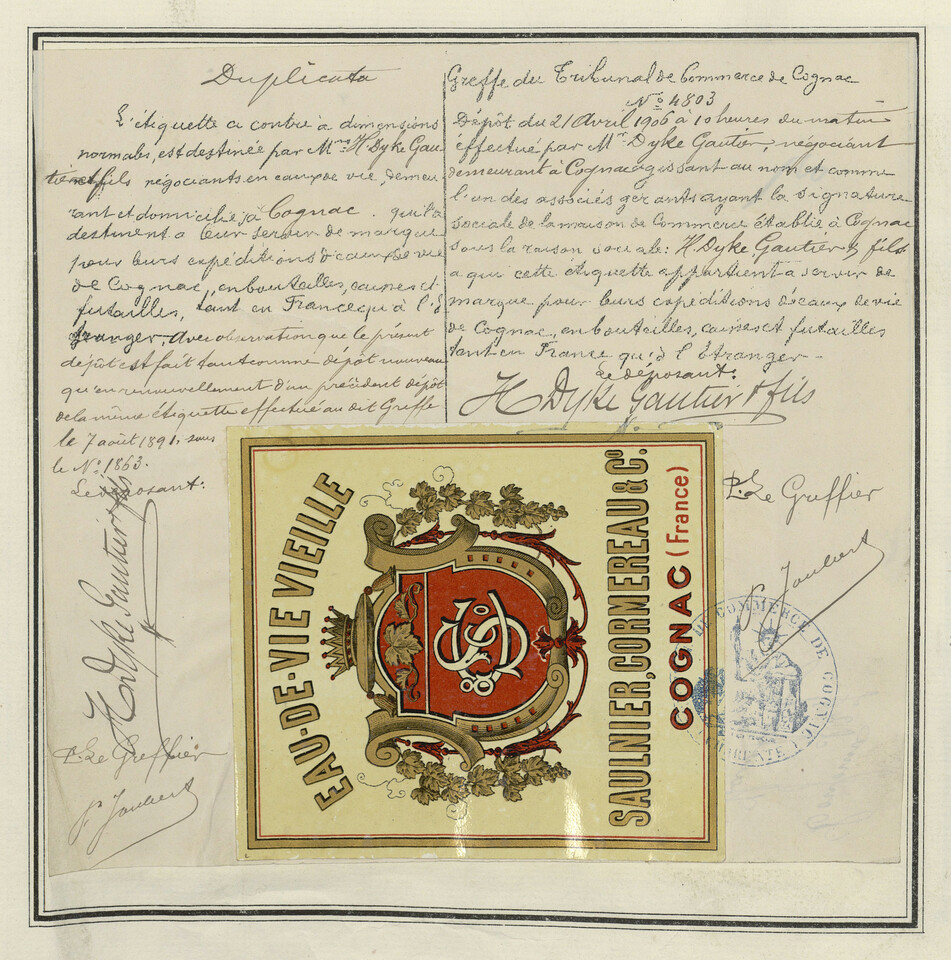 Duplicata
L'étiquette ci contre à dimensions
normales, est destinée par Mrs H Dyke Gau
tier et fils négociants en eaux de vie, demeu
rant et domiciliés à Cognac. qui la
destinent a leur servir de marque
pour leurs expéditions d'eaux de vie
de Cognac, en bouteilles, caisses et
futailles, tant en France qu'à l'É
tranger, avec observation que le présent
dépôt est fait tant comme dépôt nouveau
qu'en renouvellement d'un précédent dépôt
de la même étiquette effectué au dit Greffe
le 7 août 1891, sous
le No 1863.
Le déposant:
H Dyke Gautier & fils
P. Le Greffier
P. Joubert
Greffe du Tribunal de Commerce de Cognac
No 4803
Dépôt du 21 Avril 1906 à 10 heures du matin
effectué par Mr Dyke Gautier, négociant
demeurant à Cognac agissant au nom et comme
l'un des associés gérants ayant la signature
sociale de la maison de Commerce établie à Cognac
sous la raison sociale: H. Dyke Gautier & fils
a qui cette étiquette appartient a servir de
marque pour leurs expéditions d'eaux de vie
de Cognac, en bouteilles, caisses et futailles
tant en France qu'à l'Étranger.
Le déposant:
H Dyke Gautier & fils
P. Le Greffier
P. Joubert
EAU-DE-VIE VIEILLE
SAULNIER, CORMEREAU & Co.
COGNAC (France)
DE COMMERCE DE COGNAC
CHARENTE